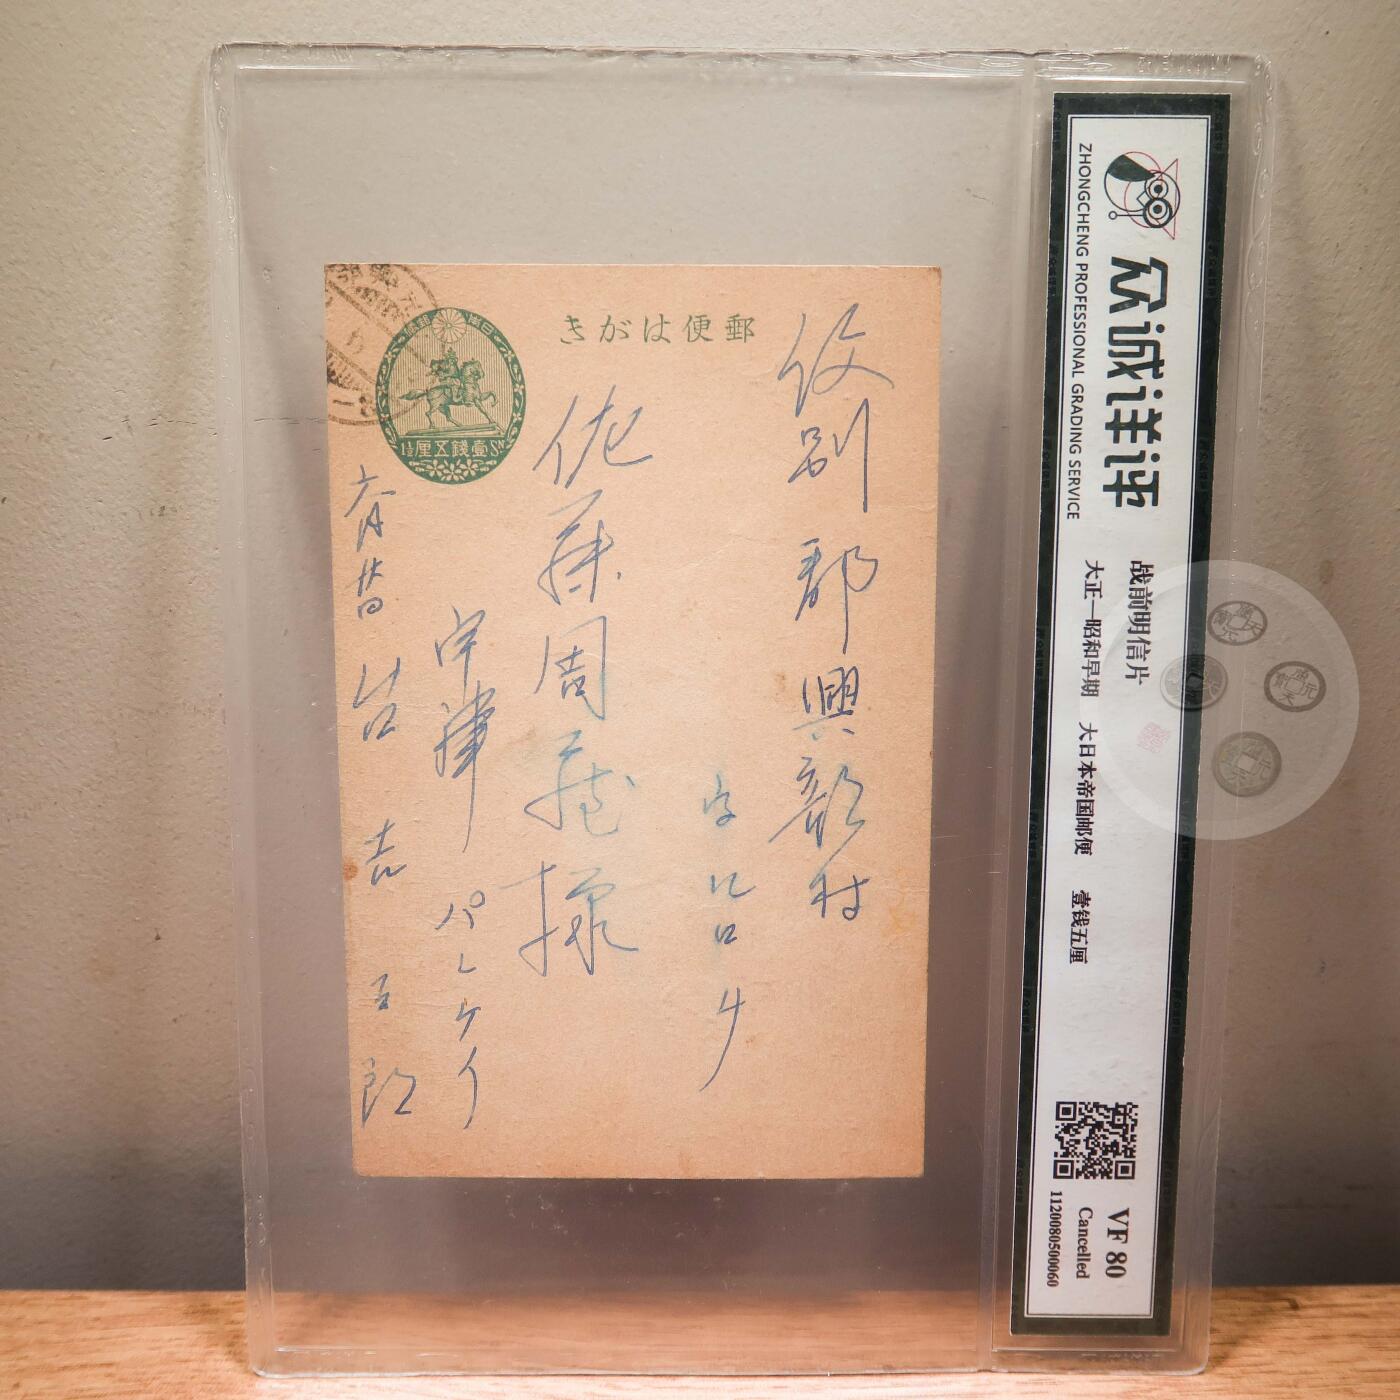 郵便はがき
日本郵便
1½ 壹錢五厘 Sn.
紋別郡興部村
字沢口
佐藤周蔵様
宇津 パンケイ
六月廿
吉五郎
众诚评评
ZHONGCHENG PROFESSIONAL GRADING SERVICE
战前明信片
大正—昭和早期 大日本帝国邮便 壹钱五厘
VF 80
Cancelled
11200805000060